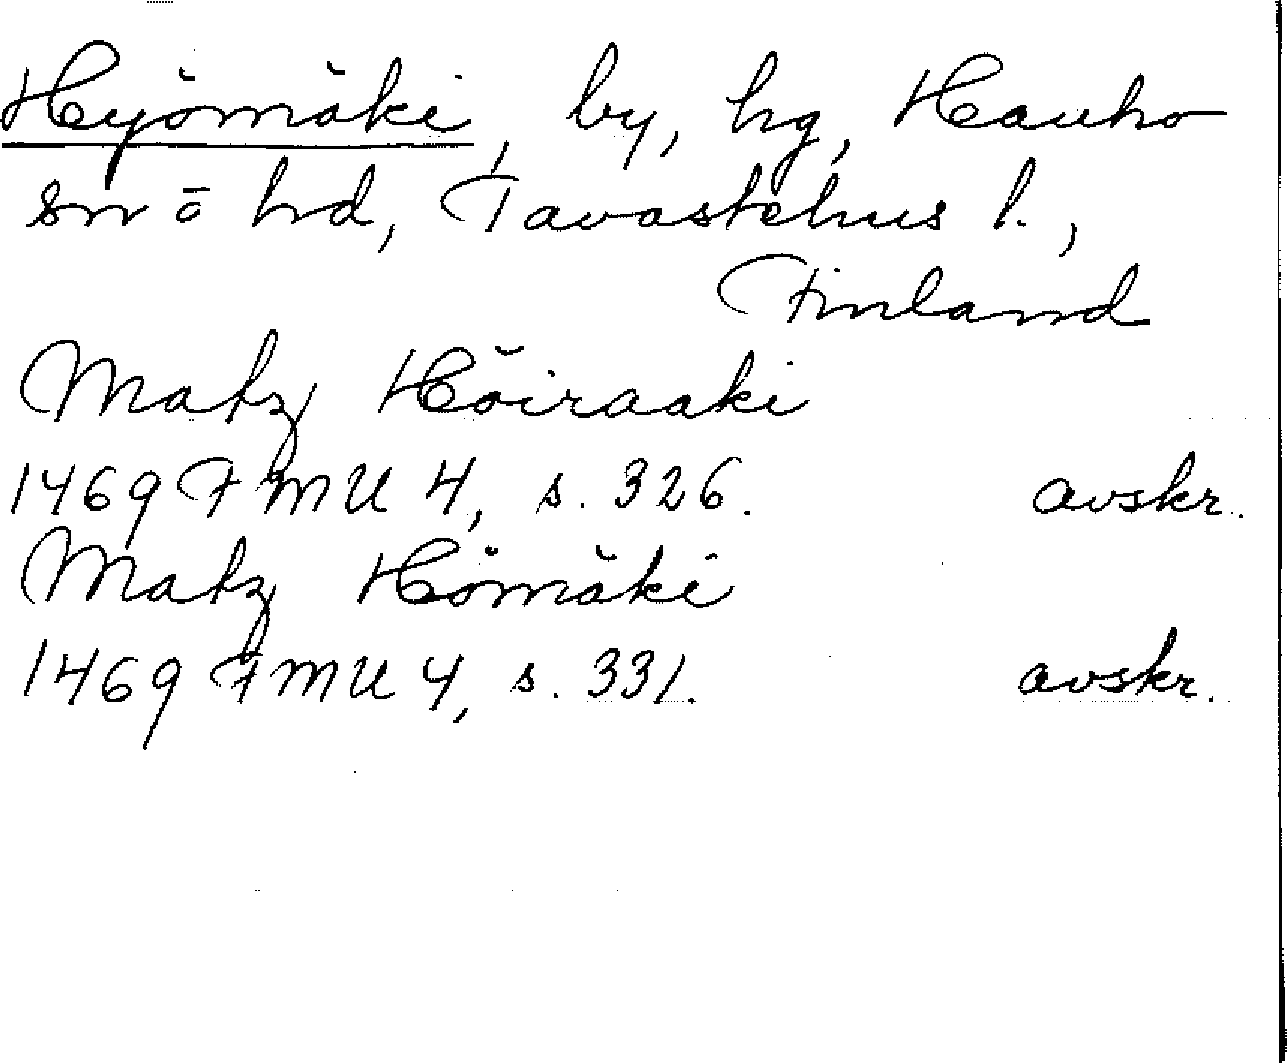 Hyömäki, by, hg, Hauho
sn o hd, Tavastehus l.,
Finland
Matz Höiraaki
1469 FMU 4, s. 326. avskr.
Matz Hömäki
1469 FMU 4, s. 331. avskr.